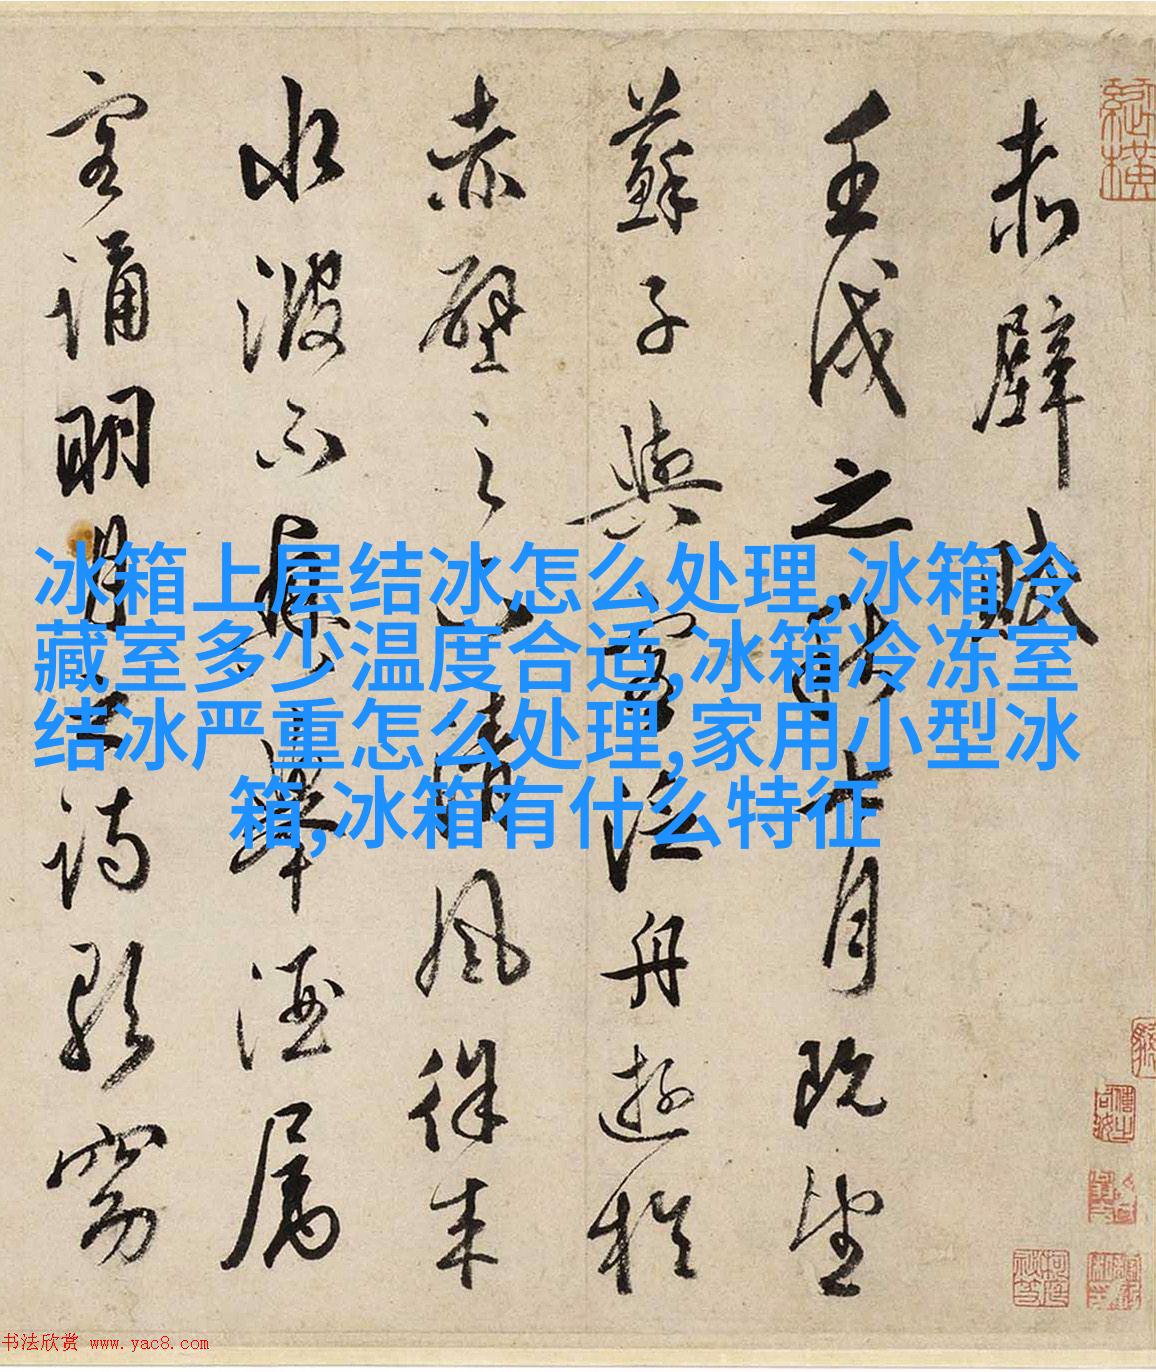 赤壁賦
壬戌之秋七月既望
蘇子與客泛舟遊於
赤壁之下清風徐来
水波不興舉酒屬
客誦明月之詩歌窈
冰箱上层结冰怎么处理,冰箱冷
藏室多少温度合适,冰箱冷冻室
结冰严重怎么处理,家用小型冰
箱,冰箱有什么特征
书法欣赏 www.yac8.com